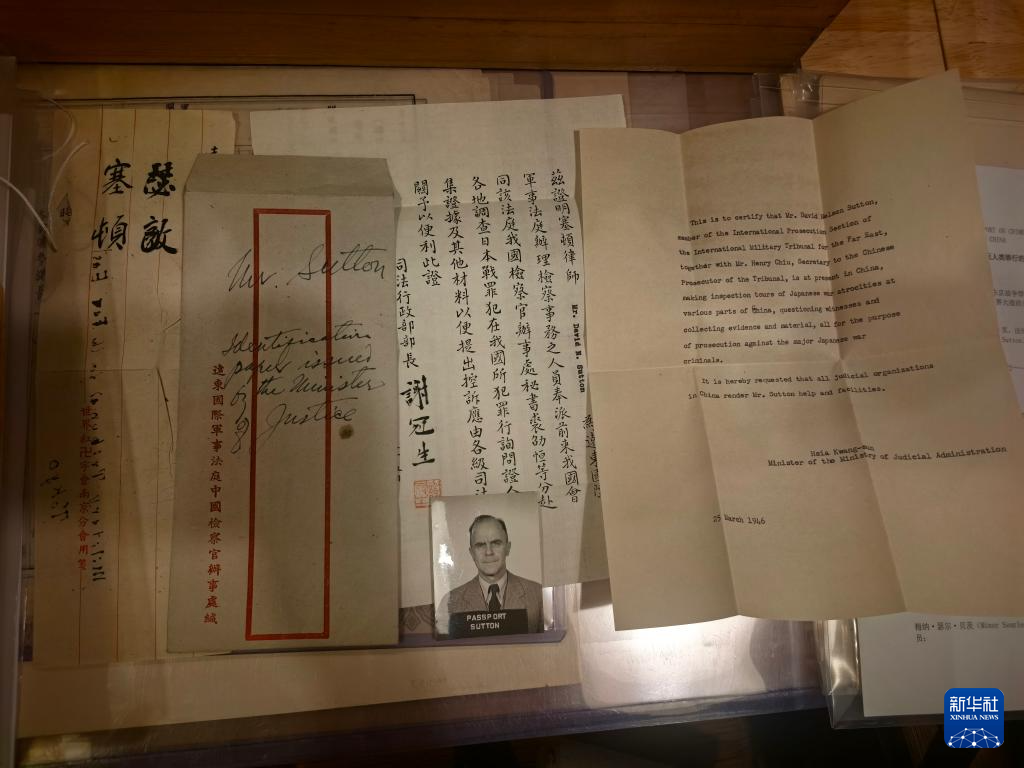 瑟敵
塞頓
世界紅卍字會南京分會用箋
Mr. Sutton
Identification
paper issued
by the Minister
of Justice
遠東國際軍事法庭中國檢察官辦事處緘
茲證明塞頓律師 Mr. David N. Sutton
軍事法庭辦理檢察事務之人員奉派前來我國會
同該法庭我國檢察官辦事處秘書裘劭恒等分赴
各地調查日本戰罪犯在我國所犯罪行詢問證人
集證據及其他材料以便提出控訴應由各級司法
關予以便利此證
司法行政部部長 謝冠生
PASSPORT
SUTTON
This is to certify that Mr. David Nelson Sutton,
member of the International Prosecution Section of
the International Military Tribunal for the Far East,
together with Mr. Henry Chiu, Secretary to the Chinese
Prosecutor of the Tribunal, is at present in China,
making inspection tours of Japanese war atrocities at
various parts of China, questioning witnesses and
collecting evidence and material, all for the purpose
of prosecution against the major Japanese war
criminals.
It is hereby requested that all judicial organizations
in China render Mr. Sutton help and facilities.
Hsia Kwang-sun
Minister of the Ministry of Judicial Administration
25 March 1946
CHINA
Sutton
梅纳·瑟尔·贝茨
员:
新华社
XINHUA NEWS